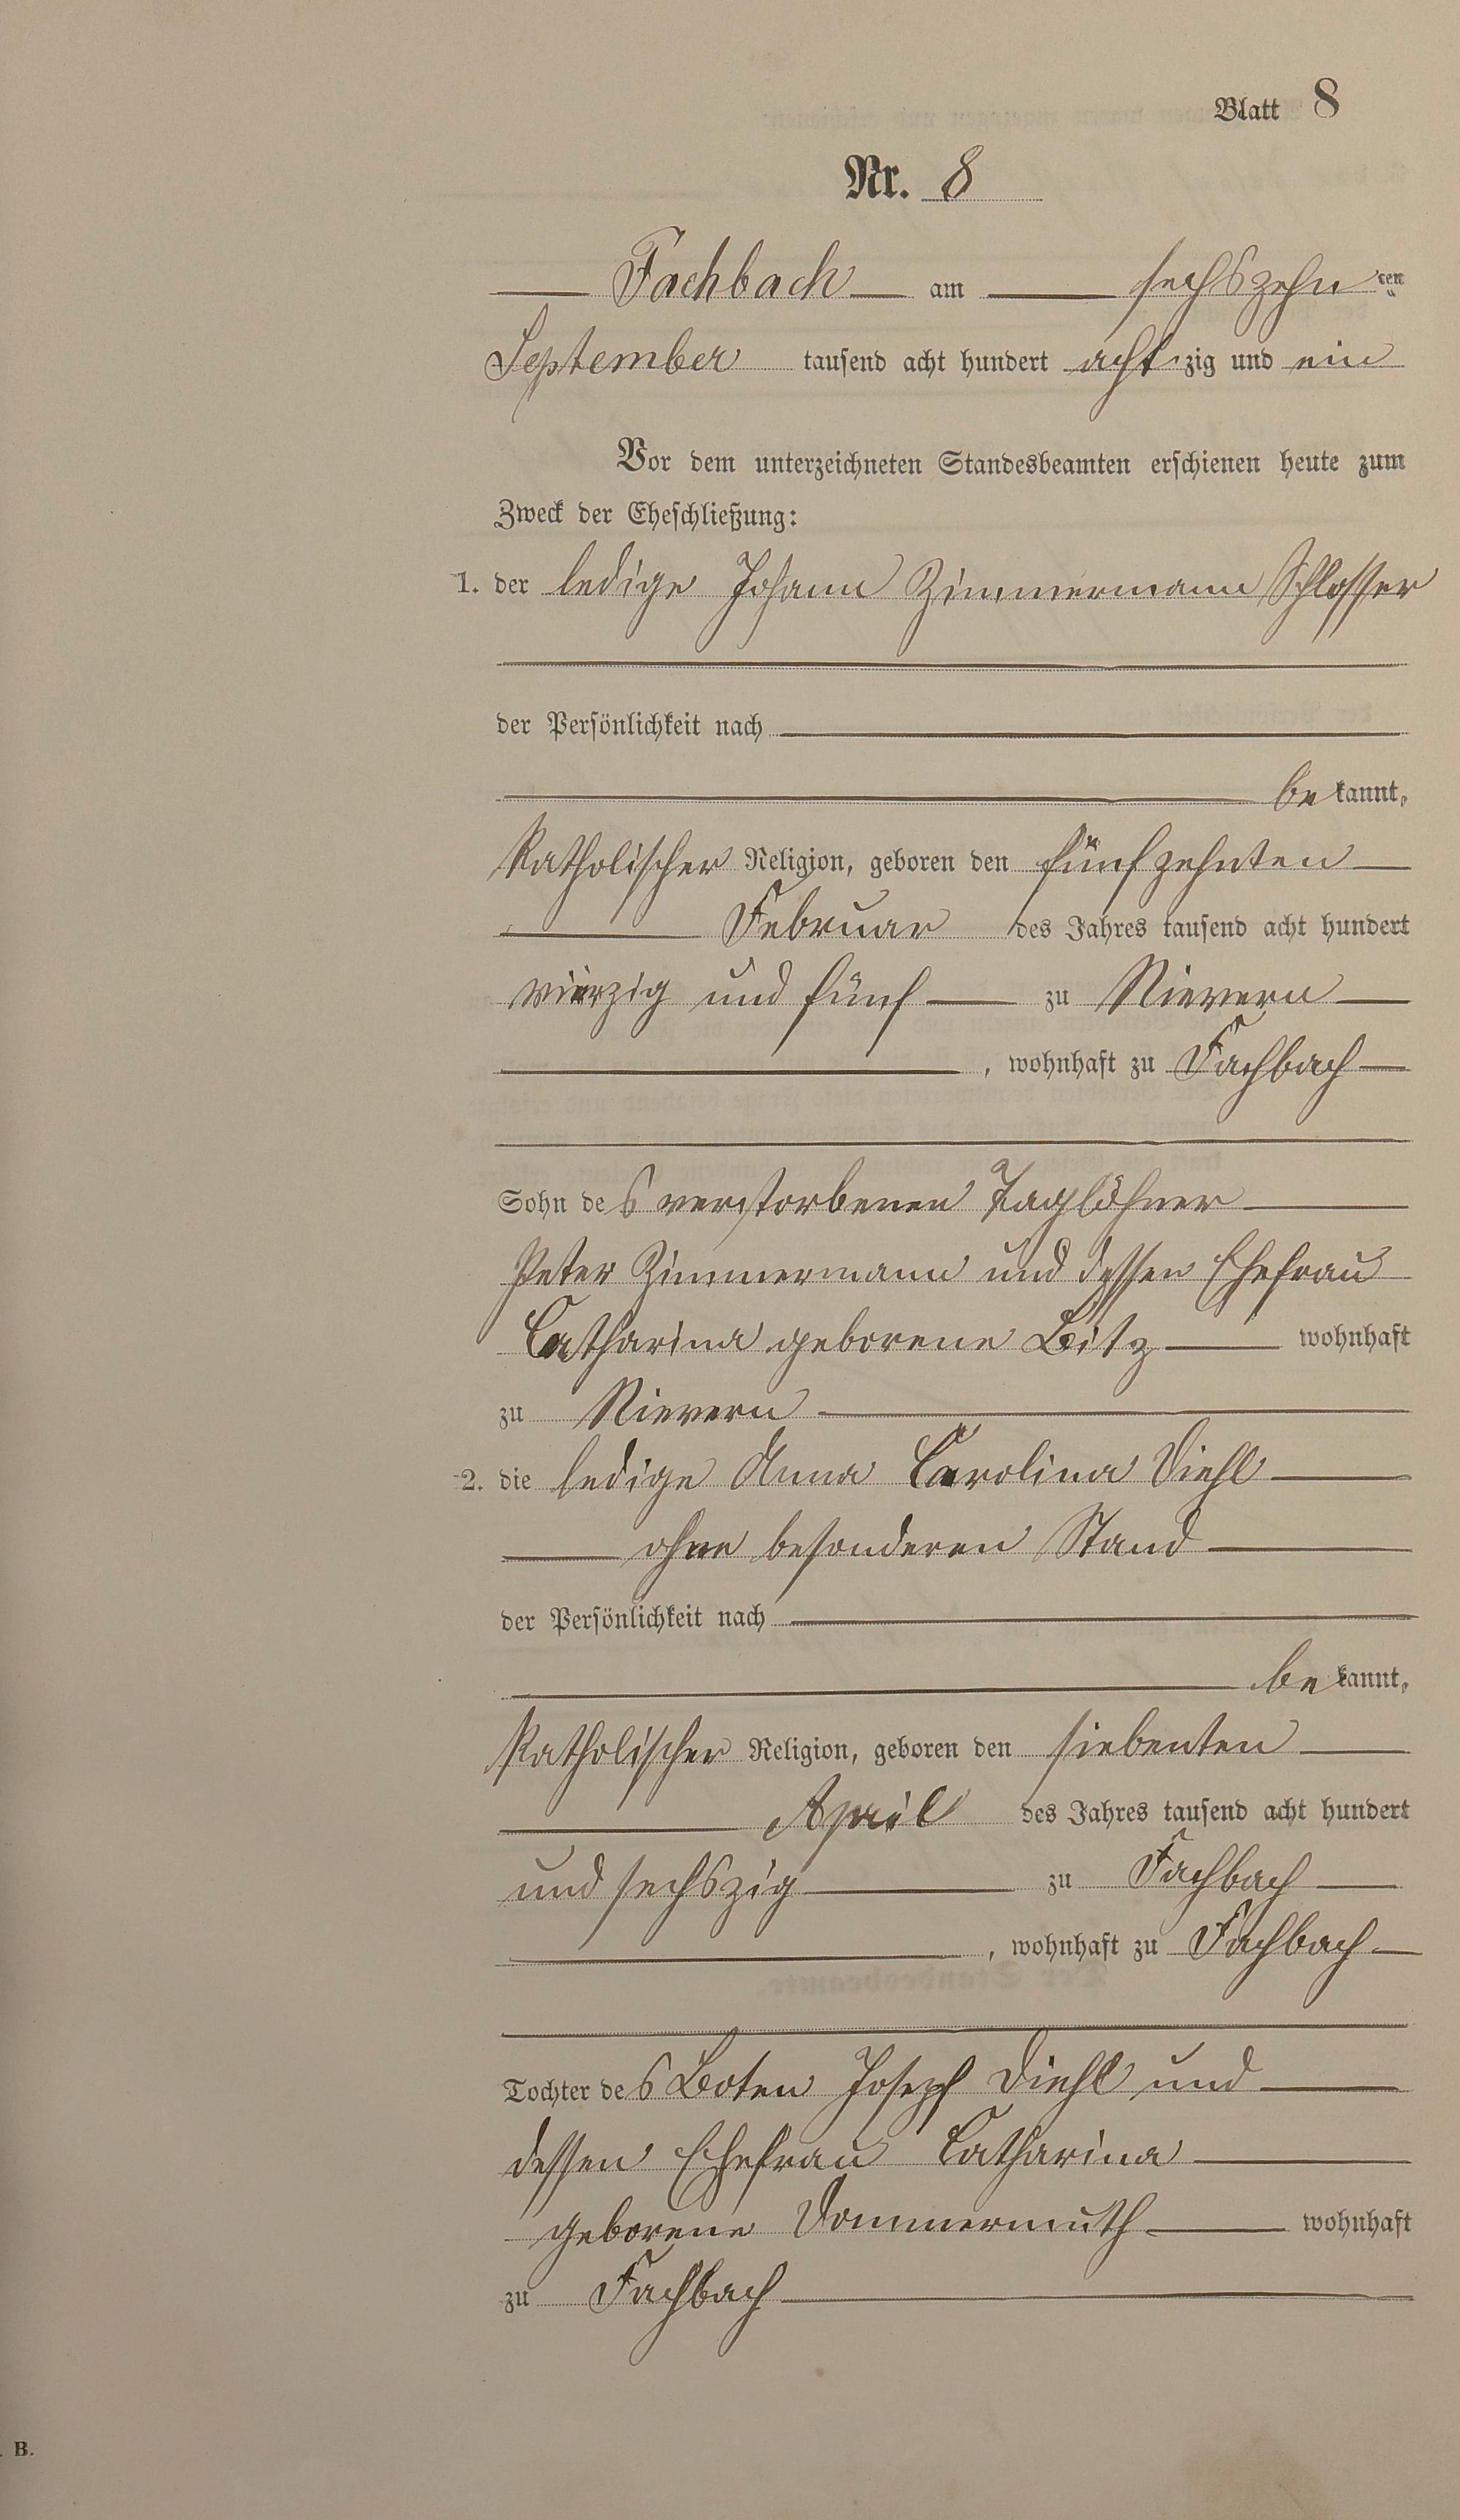 Blatt 8
Nr. 8
Fachbach am sechszehnten
September tausend acht hundert achtzig und ein
Vor dem unterzeichneten Standesbeamten erschienen heute zum
Zweck der Eheschließung:
1. der ledige Johann Zimmermann Schlosser
der Persönlichkeit nach
bekannt,
Katholischer Religion, geboren den fünfzehnten
Februar des Jahres tausend acht hundert
vierzig und fünf zu Nievern
, wohnhaft zu Fachbach
Sohn des verstorbenen Taglöhner
Peter Zimmermann und dessen Ehefrau
Catharina geborene Bitz wohnhaft
zu Nievern
2. die ledige Anna Carolina Diehl
ohne besonderen Stand
der Persönlichkeit nach
bekannt,
Katholischer Religion, geboren den siebenten
April des Jahres tausend acht hundert
und sechszig zu Fachbach
, wohnhaft zu Fachbach
Tochter des Boten Joseph Diehl und
dessen Ehefrau Catharina
geborene Dommermuth wohnhaft
zu Fachbach
B.